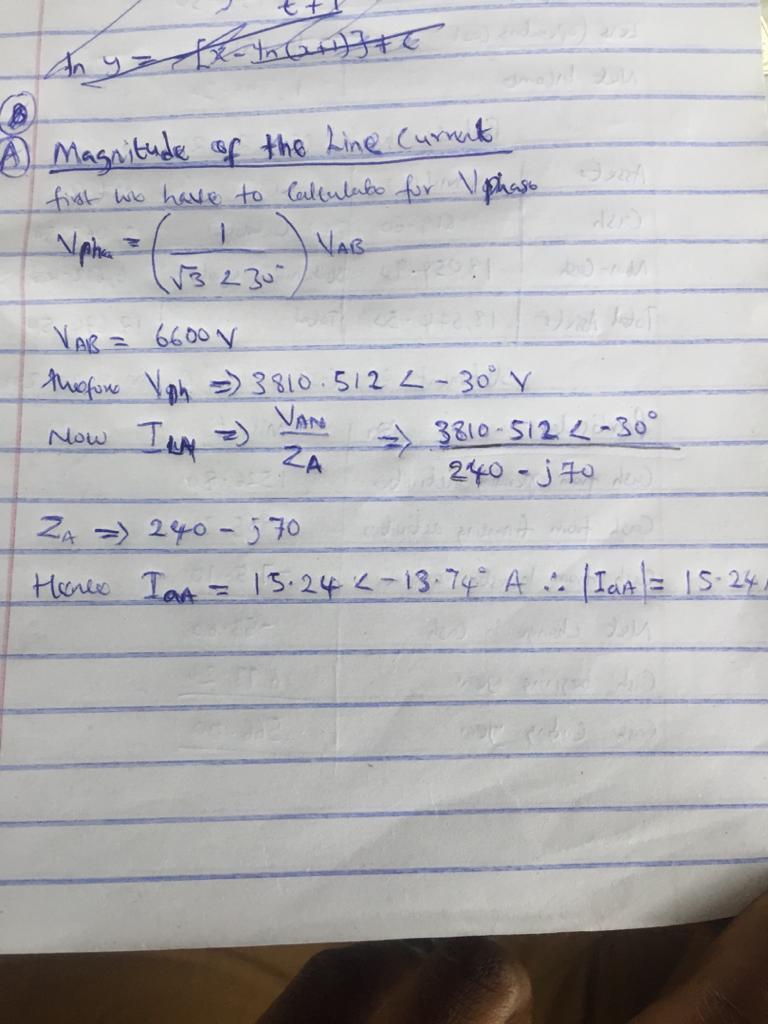 t+1
ln y = [x - ln(x+1)] + c
B
A Magnitude of the Line Current
first we have to Calculate for Vphase
Vpha = (1 / √3 < 30°) VAB
VAB = 6600 V
therefore Vph => 3810.512 < -30° V
Now I => VAN / ZA => 3810.512 < -30° / 240 - j70
ZA => 240 - j70
Hence IaA = 15.24 < -13.74° A ∴ |IaA| = 15.24